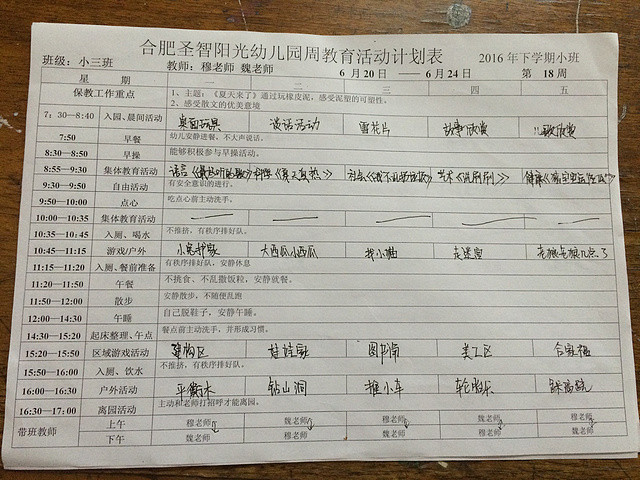 合肥圣智阳光幼儿园周教育活动计划表
班级：小三班 教师：穆老师 魏老师 6 月 20 日 ——6 月 24 日 2016 年下学期小班 第 18 周
星 期 二 三 四 五
保教工作重点 1、主题：《夏天来了》通过玩橡皮泥，感受泥塑的可塑性。
2、感受散文的优美意境
7：30—8:40 入园、晨间活动 桌面玩具 谈话活动 雪花片 故事欣赏 儿歌欣赏
7:50 早餐 幼儿安静进餐，不大声说话。
8:30—8:50 早操 能够积极参与早操活动。
8:55—9:30 集体教育活动 语言 科学《夏天真热》 社会 艺术 健康
9:30—9:50 自由活动 有安全意识的进行。
9:50—10:00 点心 吃点心前主动洗手。
10:00—10:35 集体教育活动
10:35—10:45 入厕、喝水 不推挤，有秩序排好队。
10:45—11:15 游戏/户外 大西瓜小西瓜 找小猫 走迷宫 老狼老狼几点了
11:15—11:20 入厕、餐前准备 有秩序排好队，安静休息
11:20—11:50 午餐 不挑食、不乱撒饭粒，安静就餐。
11:50—12:00 散步 安静散步，不随便乱跑
12:00—14:30 午睡 自己脱鞋子，安静午睡。
14:30—15:20 起床整理、午点 餐点前主动洗手，并形成习惯。
15:20—15:50 区域游戏活动 建构区 娃娃家 图书角 美工区
15:50—16:00 入厕、饮水 不推挤，有秩序排好队。
16:00—16:30 户外活动 平衡木 钻山洞 推小车
16:30—17:00 离园活动 主动和老师打招呼才能离园。
带班教师 上午 穆老师 魏老师 穆老师 魏老师 穆老师
下午 魏老师 穆老师 魏老师 穆老师 魏老师